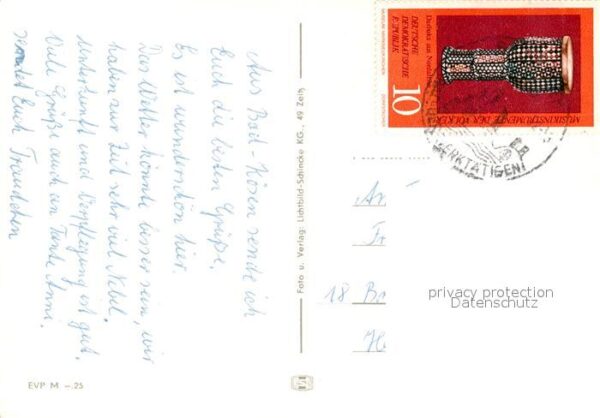 Aus Bad-Kösen sende ich
Euch die besten Grüße.
Es ist wunderschön hier.
Das Wetter könnte besser sein, wir
haben zur Zeit sehr viel Nebel.
Unterkunft und Verpflegung ist gut.
Viele Grüße auch an Tante Anni.
sendet Euch Traudchen
EVP M –.25
Foto u. Verlag: Lichtbild-Schincke KG., 49 Zeitz
MUSIKINSTRUMENTE DER VÖLKER
DEUTSCHE
DEMOKRATISCHE
REPUBLIK
10
WERKTÄTIGEN!
18
privacy protection
Datenschutz